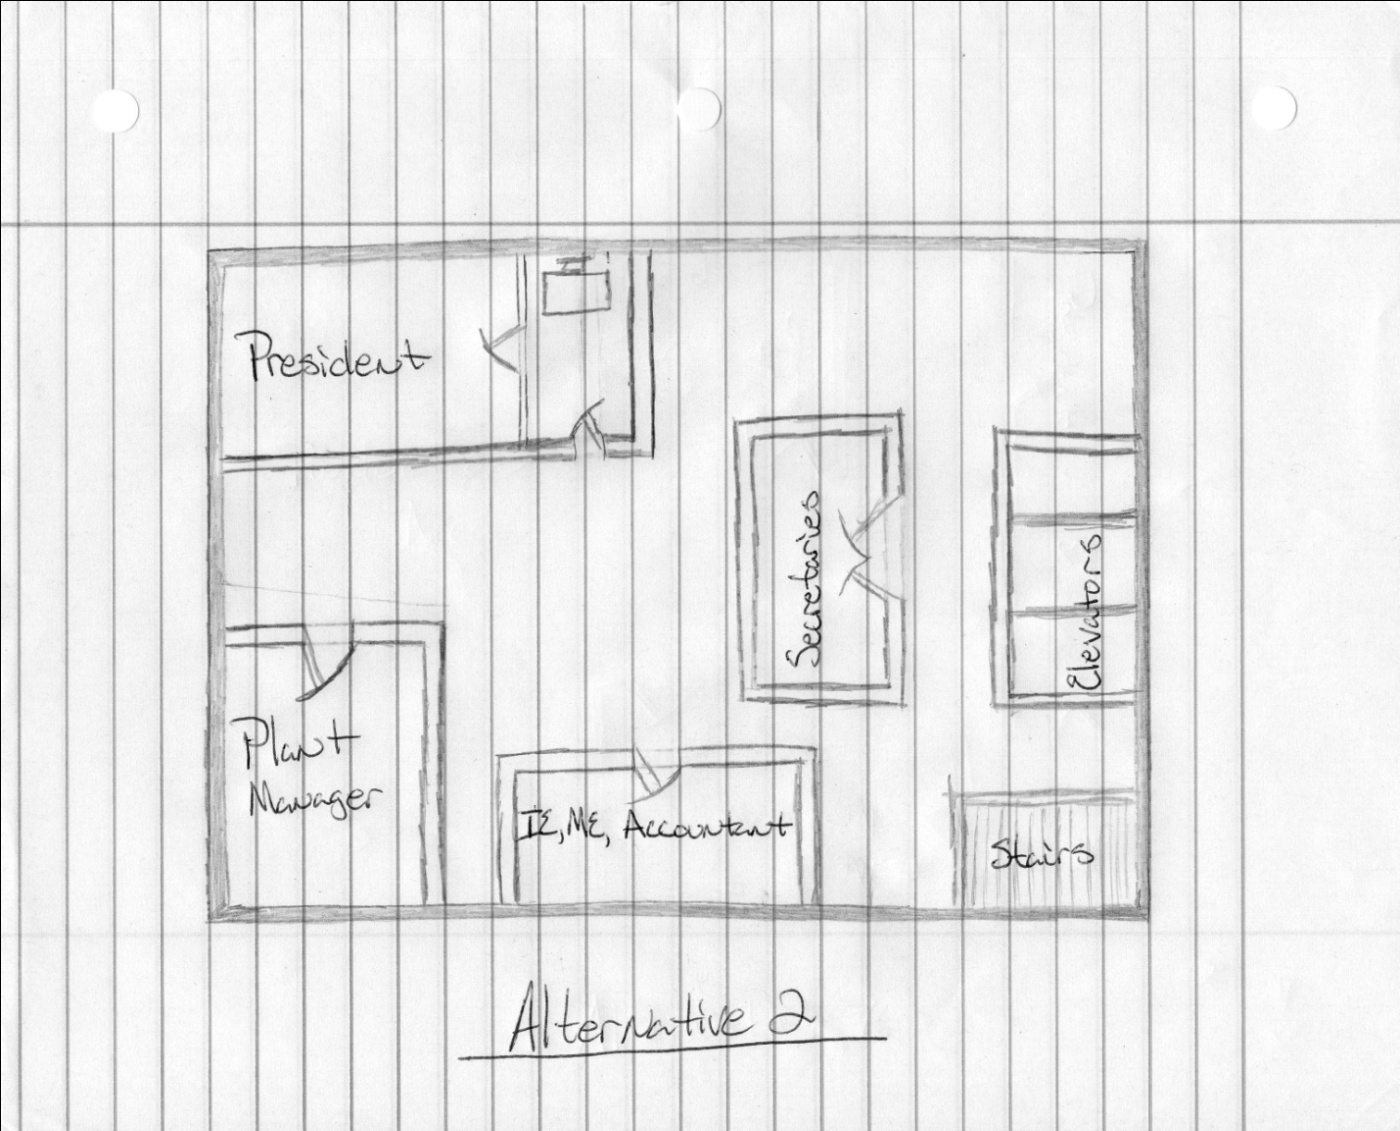 President
Secretaries
Elevators
Plant
Manager
IE, ME, Accountant
Stairs
Alternative 2